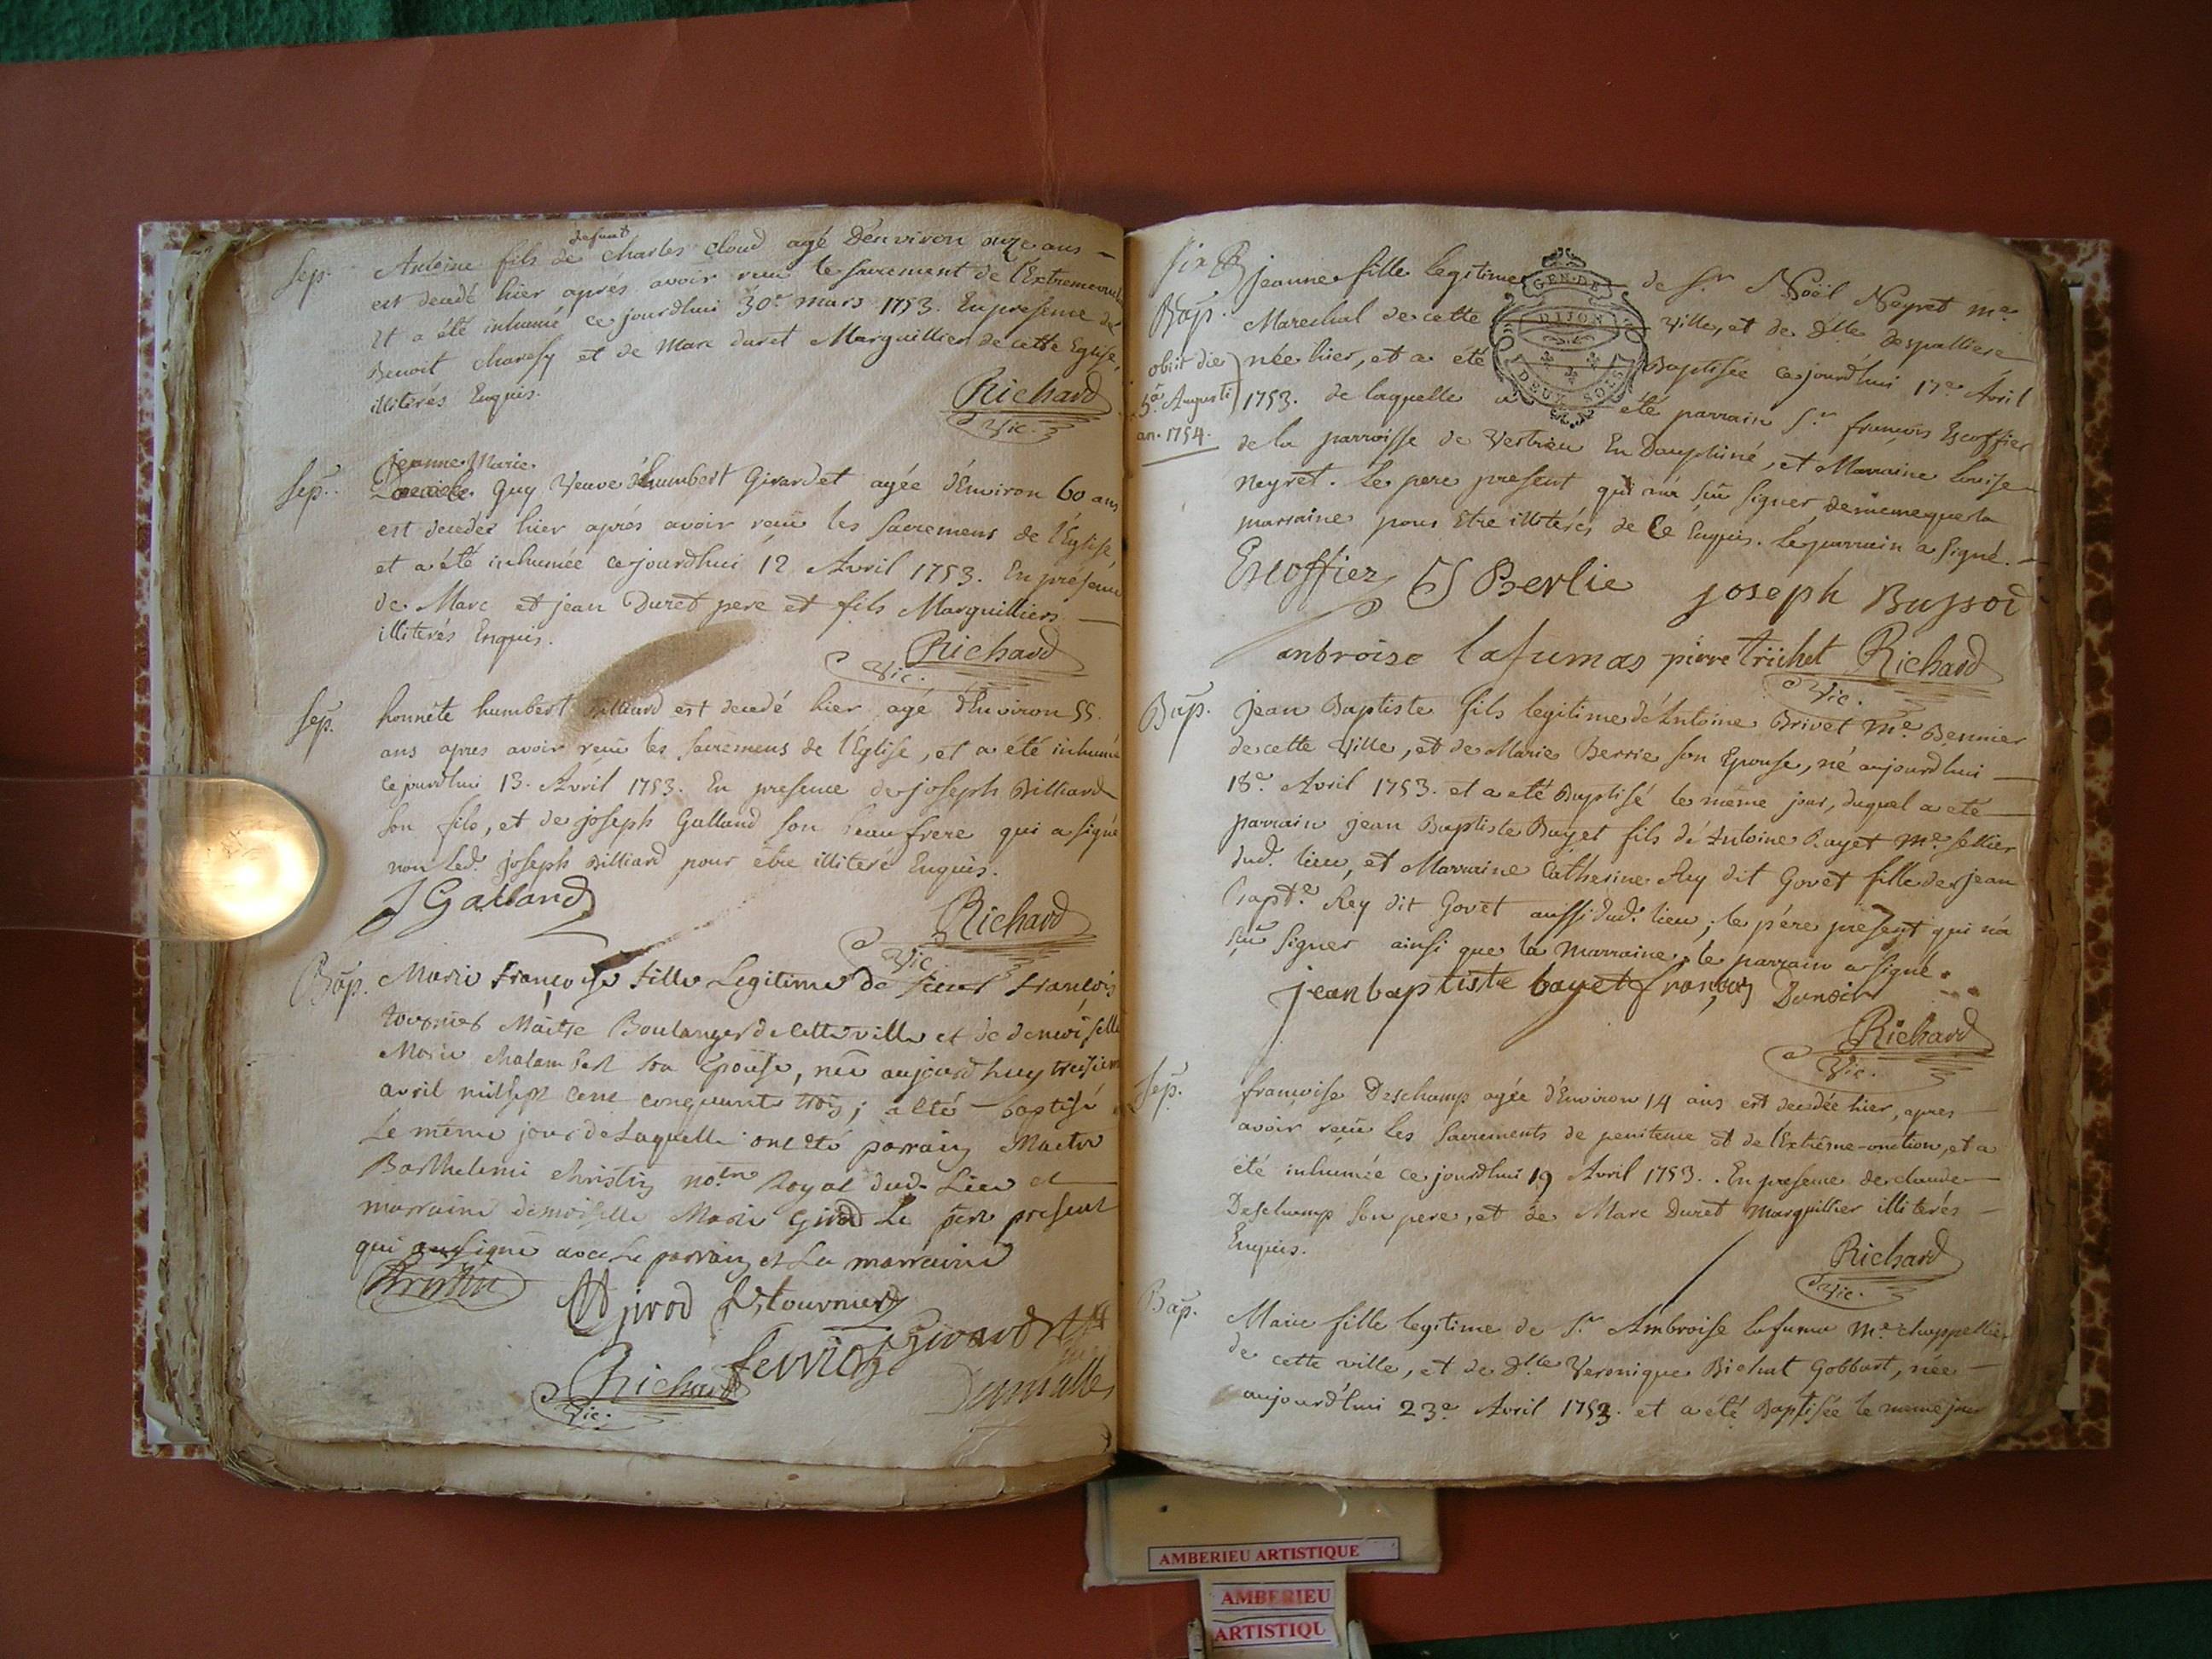 Sep. Antoine fils de defunt Charles Cloud agé d'environ onze ans
est decedé hier aprés avoir reçu le sacrement de l'Extremeonction
Et a été inhumé ce jourdhui 30e mars 1753. En presence de
Benoit et de Marc duret Marguillier de cette Eglise,
illiterés Enquis.
Richard
Vic.
Sep. Jeanne Marie
Guy Veuve d'humbert Girardet agée d'Environ 60 ans
est decedée hier aprés avoir reçeu les sacremens de l'Église
et a été inhumée cejourdhui 12 Avril 1753. En présence
de Marc et jean Duret pere et fils Marguilliers
illiterés Enquis.
Richard
Vic.
Sep. honnête humbert Billiard est decedé hier agé d'Environ 55
ans apres avoir reçeu les sacremens de l'Eglise, et a été inhumé
ce jourdhui 13. Avril 1753. En presence de joseph Billiard
son fils, et de joseph Galland son beaufrere qui a signé
non led. joseph Billiard pour être illiteré Enquis.
J Galland
Richard
Vic
Bap. Marie françoise fille Legitime de sieur françois
tournier Maitre Boulanger de cette ville et de demoiselle
Marie chalambel son Epouse, née aujourd huy treisieme
avril mil sept cent cinquante trois; a été baptisé
Le même jour de Laquelle ont été parrain Maitre
Barthelemi christin notre Royal dud. Lieu et
marraine demoiselle Marie Girod Le pere present
qui signé avec Le parrain et La marraine
Christin
M girod f tournier
ferrioz Girard
Richard
Vic.
Six
Bap. jeanne fille legitime de Sr. Noël Neyret me.
Marechal de cette Ville, et de Dlle Despalliere
née hier, et a été Baptisée ce jourdhui 17e Avril
1753. de laquelle a été parrain Sr. françois Escoffier
de la parroisse de Vertrieu En Dauphiné, et Marraine Louise
Neyret. Le pere present qui n'a sçu signer de meme que la
marraine pour Etre illiterés de Ce Enquis. Le parrain a signé.
obiit die
5a. Augusti
an. 1754.
GEN. DE
DIJON
DEUX SOLS
Escoffier Berlie joseph Bussod
anbroise lafumas pierre trichet Richard
Vic.
Bap. jean Baptiste fils legitime d'Antoine Brivet me.
de cette Ville, et de Marie Berrie son Epouse, né aujourdhui
18e. Avril 1753. et a été Baptisé le même jour, duquel a été
parrain jean Baptiste Bayet fils d'Antoine Bayet me. sellier
dud. lieu, et Marraine Catherine Rey dit Govet fille de jean
Bapte. Rey dit Govet aussi dud. lieu; le pére présent qui n'a
sçu signer ainsi que la Marraine. le parrain a signé.
jean baptiste bayet françois
Richard
Vic.
Sep. françoise Deschamp agée d'Environ 14 ans est decedée hier, apres
avoir reçeu les Sacrements de penitence et de l'Extrême-onction, et a
été inhumée ce jourdhui 19 Avril 1753. En presence de claude
Deschamp son pere, et de Marc Duret Marguillier illiterés
Enquis.
Richard
Vic.
Bap. Marie fille legitime de Sr. Ambroise lafuma Me. chappellier
de cette ville, et de Dlle Veronique Bichat Gobbart, née
aujourd'hui 23e Avril 1753. et a été Baptisée le meme jour
AMBERIEU ARTISTIQUE
AMBERIEU
ARTISTIQU